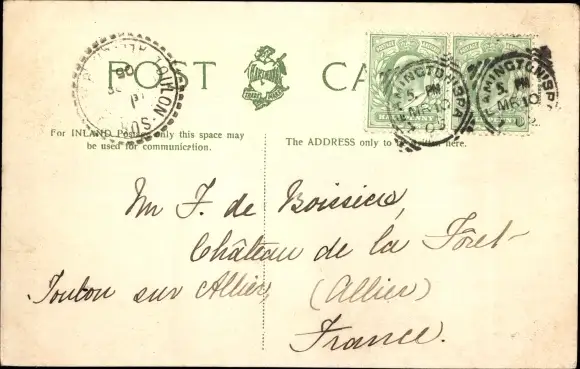 POST CA
LEAMINGTON SPA
5 PM
MR 10
05
LEAMINGTON SPA
5 PM
MR 10
HALFPENNY
For INLAND Postage only this space may
be used for communication.
The ADDRESS only to be written here.
F. de Boissieu
Château de la Fôret
Toulon sur Allier, (Allier)
France.